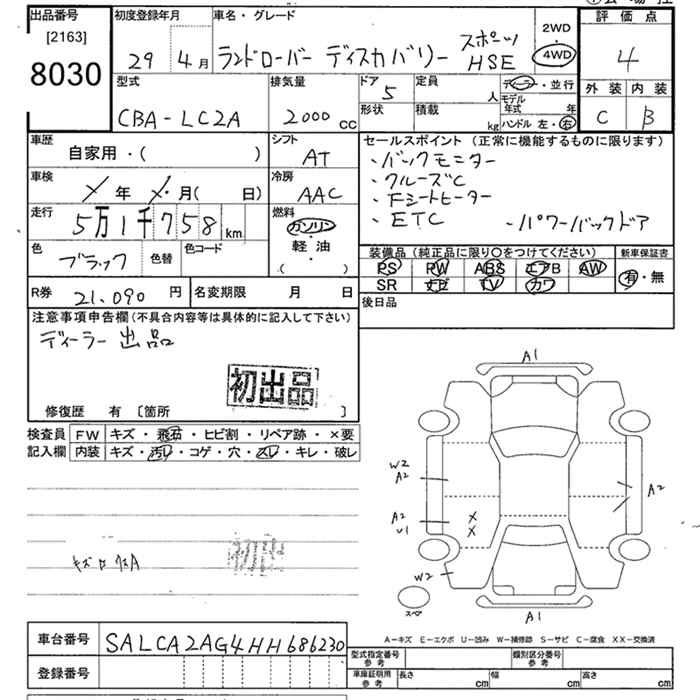 出品番号 初度登録年月 車名・グレード 2WD 評価点
[2163]
8030 29 4月 ランドローバー ディスカバリー スポーツ HSE 4WD 4
型式 排気量 ドア 定員 ディーラー・並行 外装 内装
CBA-LC2A 2000cc 5 人 モデル年式 年 C B
形状 積載 kg ハンドル 左・右
車歴 自家用・( ) シフト AT セールスポイント(正常に機能するものに限ります)
・バックモニター
・クルーズC
・Fシートヒーター
・ETC ・パワーバックドア
車検 メ年 メ月( 日) 冷房 AAC
走行 5万1千758km 燃料 ガソリン・軽・油 ( )
色 ブラック 色替 色コード
装備品(純正品に限り○をつけてください) 新車保証書
PS PW ABS エアB AW 有・無
SR ナビ TV カワ
R券 21,090円 名変期限 月 日 後日品
注意事項申告欄(不具合内容等は具体的に記入して下さい)
ディーラー出品
初出品
修復歴 有 [箇所 ]
検査員 FW キズ・飛石・ヒビ割・リペア跡・×要
記入欄 内装 キズ・汚レ・コゲ・穴・スレ・キレ・破レ
A1
W2
A2 A2
A2 X
U1 X
W2
スペア
A1
車台番号 SALCA2AG4HH686230
登録番号
A-キズ E-エクボ U-凹み W-補修跡 S-サビ C-腐食 XX-交換済
型式指定番号 参考 類別区分番号 参考
車庫証明用 参考 長さ cm 幅 cm 高さ cm